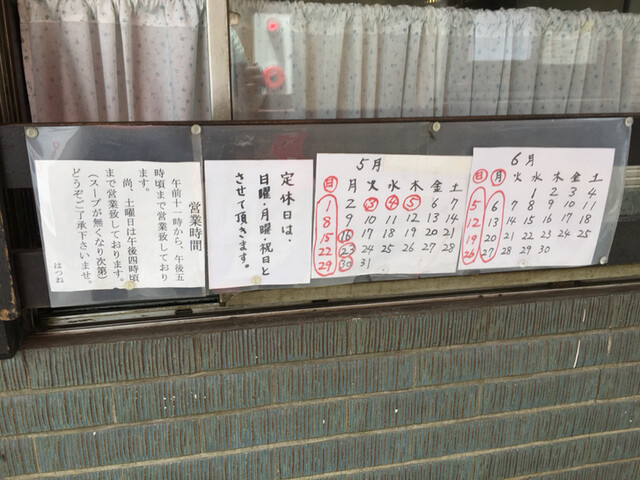 営業時間
午前十一時から、午後五
時頃まで営業致しており
ます。
尚、土曜日は午後四時頃
まで営業致しております。
(スープが無くなり次第)
どうぞご了承下さいませ。
はつね
定休日は、
日曜・月曜・祝日と
させて頂きます。
5月
日 月 火 水 木 金 土
1 2 3 4 5 6 7
8 9 10 11 12 13 14
15 16 17 18 19 20 21
22 23 24 25 26 27 28
29 30 31
6月
日 月 火 水 木 金 土
1 2 3 4
5 6 7 8 9 10 11
12 13 14 15 16 17 18
19 20 21 22 23 24 25
26 27 28 29 30